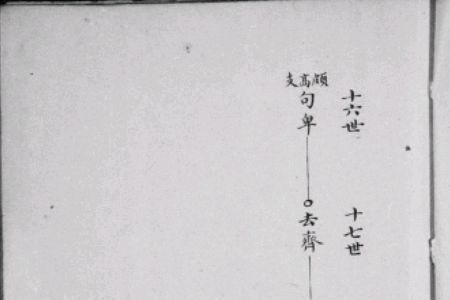 十六世
十七世
頗高支
句卑
去齊